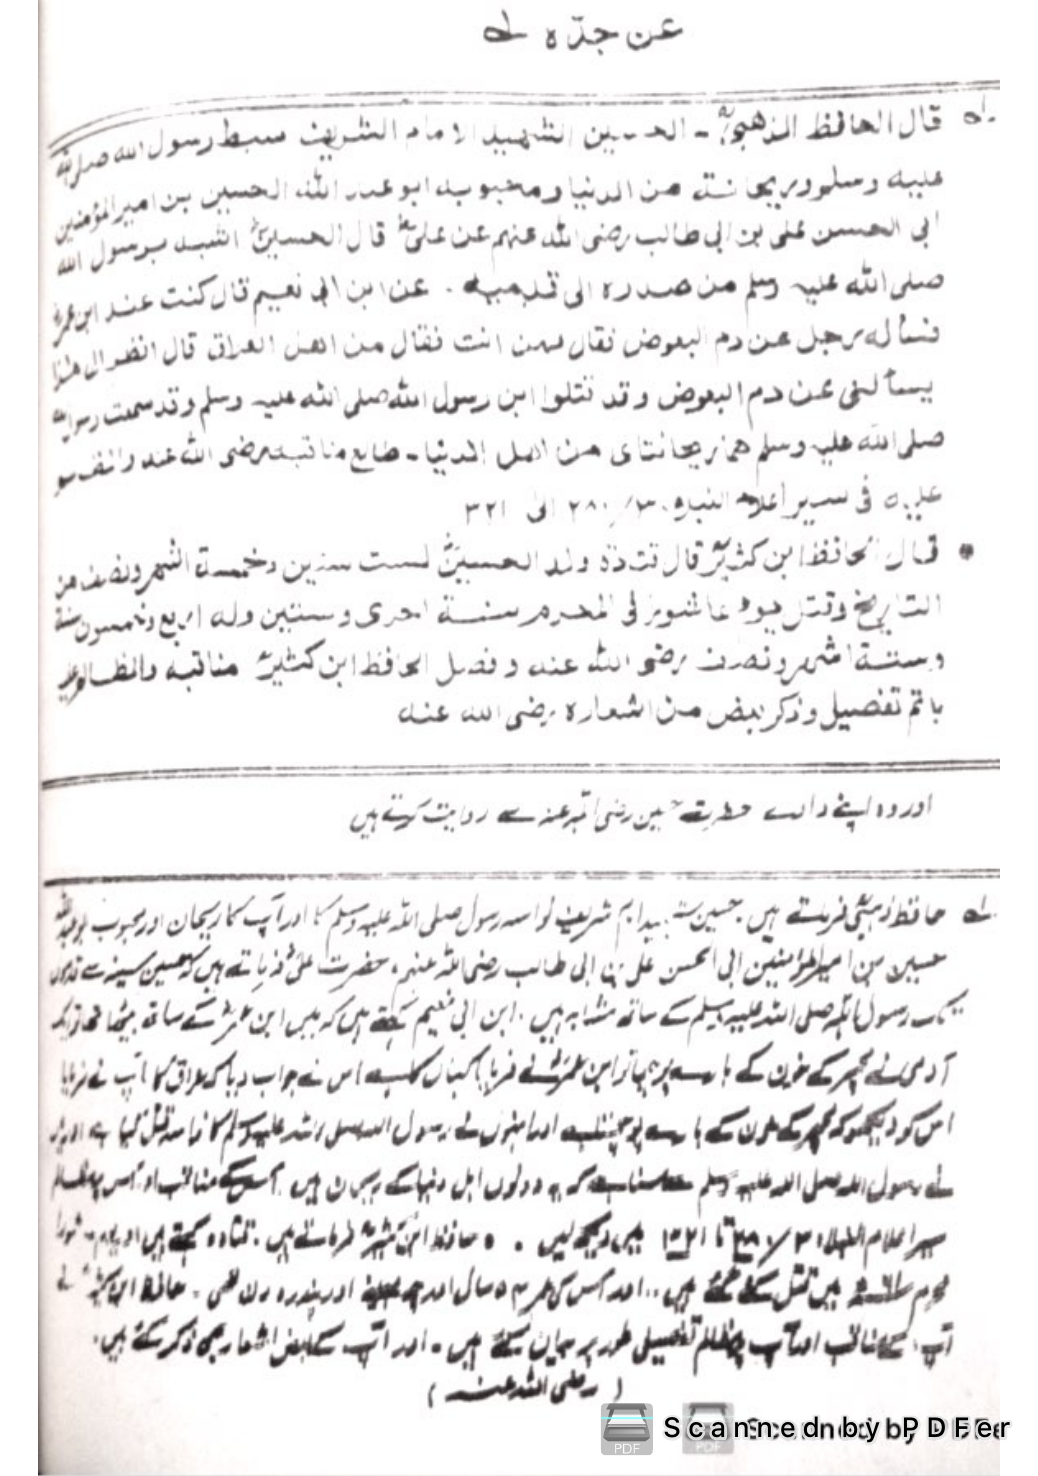 عن جدّه لـه
لـه قال الحافظ الذهبيؒ - الحسين الشهيد الامام الشريف سبط رسول الله صلى الله
عليه وسلم وريحانته من الدنيا ومحبوبه ابو عبد الله الحسين بن امير المؤمنين
ابى الحسن على بن ابى طالب رضى الله عنهم عن علىؓ قال الحسينؓ اشبه برسول الله
صلى الله عليه وسلم من صدره الى قدميه . عن ابن ابى نعيم قال كنت عند ابن عمرؓ
فسأله رجل عن دم البعوض فقال ممن انت فقال من اهل العراق قال انظر الى هذا
يسألنى عن دم البعوض وقد قتلوا ابن رسول الله صلى الله عليه وسلم وقد سمعت رسول الله
صلى الله عليه وسلم هما ريحانتاى من اهل الدنيا - طالع مناقبه رضى الله عنه
عليه فى سير اعلام النبلاء ٣/٢٨٠ الى ٣٢١
• قال الحافظ ابن كثيرؒ قال قتادة ولد الحسينؓ لست سنين وخمسة اشهر ونصف من
التاريخ وقتل يوم عاشوراء فى المحرم سنة احدى وستين وله اربع وخمسون سنة
وستة اشهر ونصف رضى الله عنه وفصل الحافظ ابن كثيرؒ مناقبه والمظالم عليه
باتم تفصيل وذكر بعض من اشعاره رضى الله عنه
اور وہ اپنے دادے حضرت حسین رضی اللہ عنہ سے روایت کرتے ہیں
لـه حافظ ذہبیؒ فرماتے ہیں . حسین شہید امام شریف نواسہ رسول صلی اللہ علیہ وسلم کا اور آپ کا ریحان اور محبوب ابو عبد اللہ
حسین بن امیر المؤمنین ابی الحسن علی بن ابی طالب رضی اللہ عنہم ، حضرت علیؓ فرماتے ہیں کہ حسین سینہ سے قدموں
تک رسول اللہ صلی اللہ علیہ وسلم کے ساتھ مشابہ ہیں . ابن ابی نعیم کہتے ہیں کہ میں ابن عمرؓ کے ساتھ بیٹھا تھا تو ایک
آدمی نے مچھر کے خون کے بارے پوچھا تو ابن عمرؓ نے فرمایا کہاں کا ہے اس نے جواب دیا کہ عراق کا آپ نے فرمایا
اس کو دیکھو کہ مچھر کے خون کے بارے پوچھتا ہے اور انہوں نے رسول اللہ صلی اللہ علیہ وسلم کا نواسہ قتل کیا ہے اور میں
نے رسول اللہ صلی اللہ علیہ وسلم سے سنا ہے کہ یہ دونوں اہل دنیا کے ریحان ہیں . آپ کے مناقب اور اس پر مظالم
سیر اعلام النبلاء ٣/٢٨٠ تا ٣٢١ میں دیکھ لیں . • حافظ ابن کثیرؒ فرماتے ہیں . قتادہ کہتے ہیں اور یوم عاشورا
محرم ٦١ھ میں قتل کئے گئے ہیں .. اور اس کی عمر ٥٤ سال اور چھ مہینے اور پندرہ دن تھی . حافظ ابن کثیرؒ نے
آپ کے مناقب اور آپ پر مظالم تفصیلی طور پر بیان کئے ہیں . اور آپ کے بعض اشعار بھی ذکر کئے ہیں .
( رضی اللہ عنہ )
Scanned by PDFer